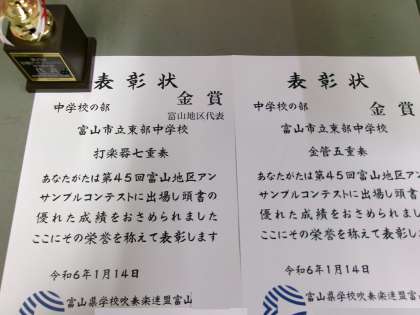 表彰状
中学校の部 金賞
富山地区代表
富山市立東部中学校
打楽器七重奏
あなたがたは第45回富山地区アン
サンブルコンテストに出場し頭書の
優れた成績をおさめられました
ここにその栄誉を称えて表彰します
令和6年1月14日
富山県学校吹奏楽連盟富山
表彰状
中学校の部 金賞
富山市立東部中学校
金管五重奏
あなたがたは第45回富山地区ア
サンブルコンテストに出場し頭書
優れた成績をおさめられまし
ここにその栄誉を称えて表彰し
令和6年1月14日
富山県学校吹奏楽連盟